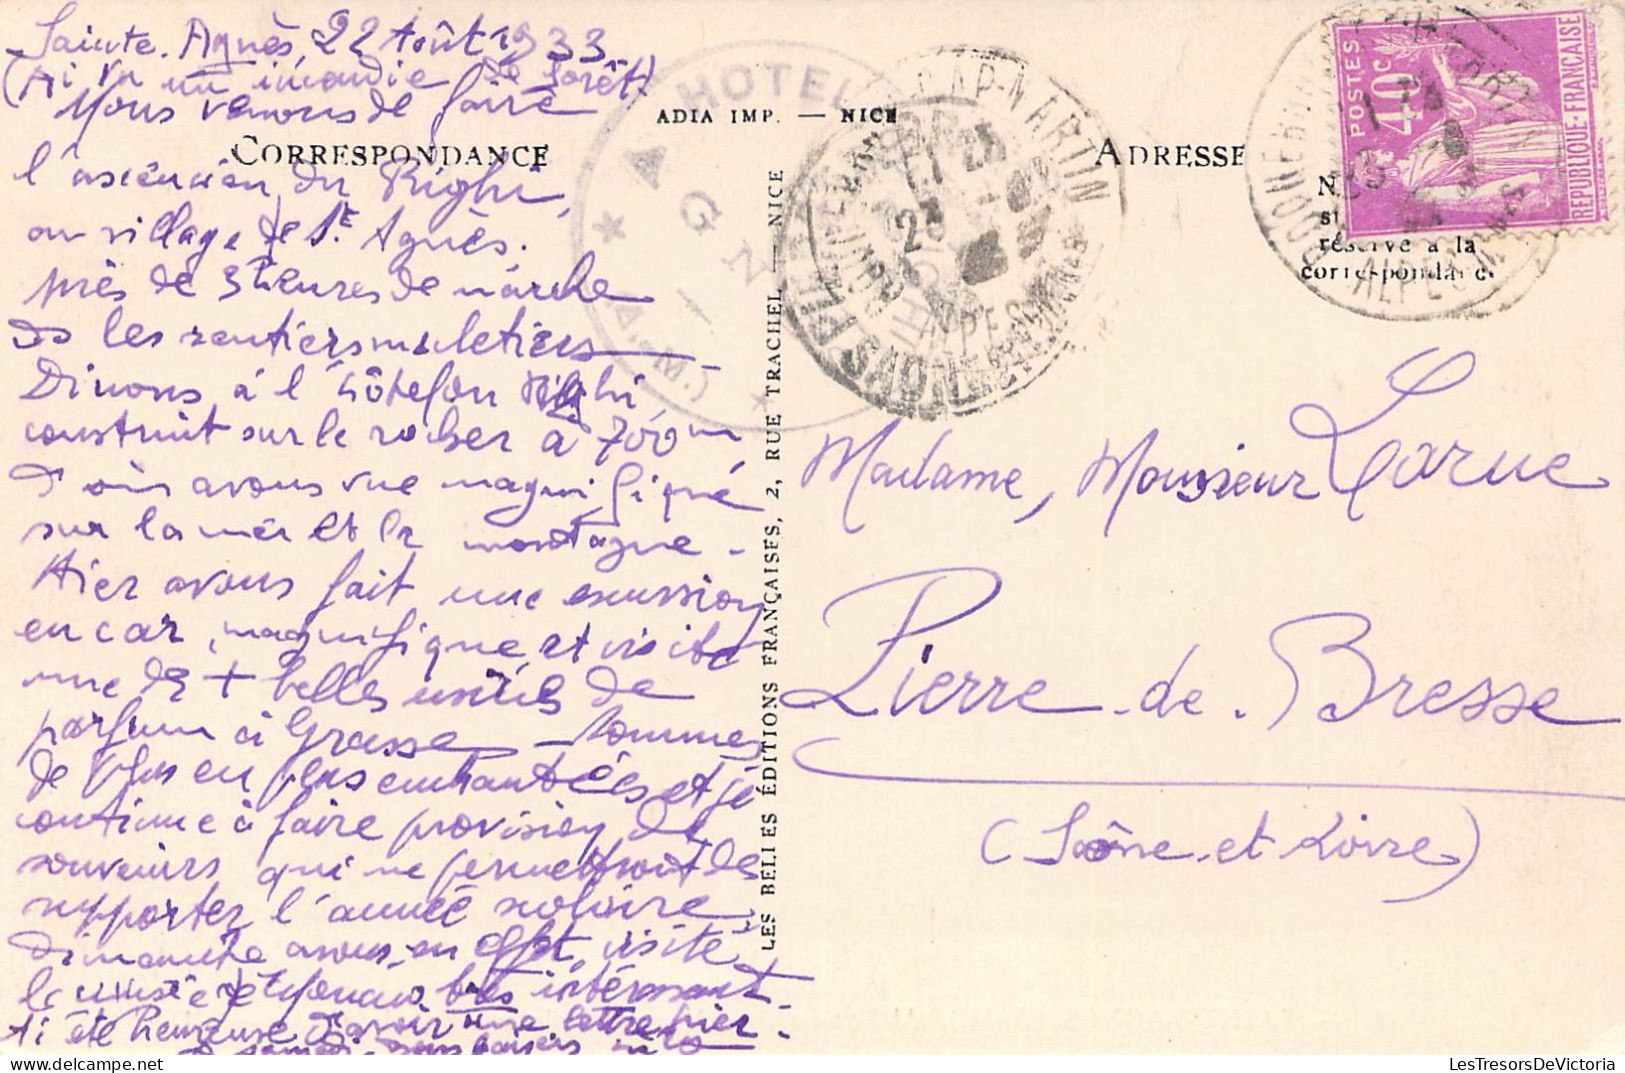 Sainte. Agnès, 22 Août 1933
(Ai vu un incendie de forêt)
Nous venons de faire
CORRESPONDANCE
l'ascencion du Righi,
au village de Ste Agnès.
près de 3 heures de marche
ds les sentiers muletiers
Dinons à l'hôtel du Righi
construit sur le rocher à 700m
d'où avons vue magnifique
sur la mer et la montagne -
Hier avons fait une excursion
en car, magnifique et visité
une des + belles usines de
parfum à Grasse - Sommes
de plus en plus enchantées et je
continue à faire provision de
souvenirs qui me permettront de
supporter l'année scolaire,
Dimanche avons, en effet, visité
le musée très intéressant -
Ai été heureuse d'avoir une lettre hier -
bons baisers
HOTEL
AGN
(A.-M.)
ADIA IMP. — NICE
LES BELLES ÉDITIONS FRANÇAISES, 2, RUE TRACHEL — NICE
ROQUEBRUNE CAP-MARTIN
ALPES MARITIMES
ADRESSE
réservé à la
correspondance
POSTES
40c
REPUBLIQUE-FRANÇAISE
ROQUEBRUNE CAP-MARTIN
ALPES MMES
Madame, Monsieur Larue
Pierre-de-Bresse
(Saône-et-Loire)
LesTresorsDeVictoria